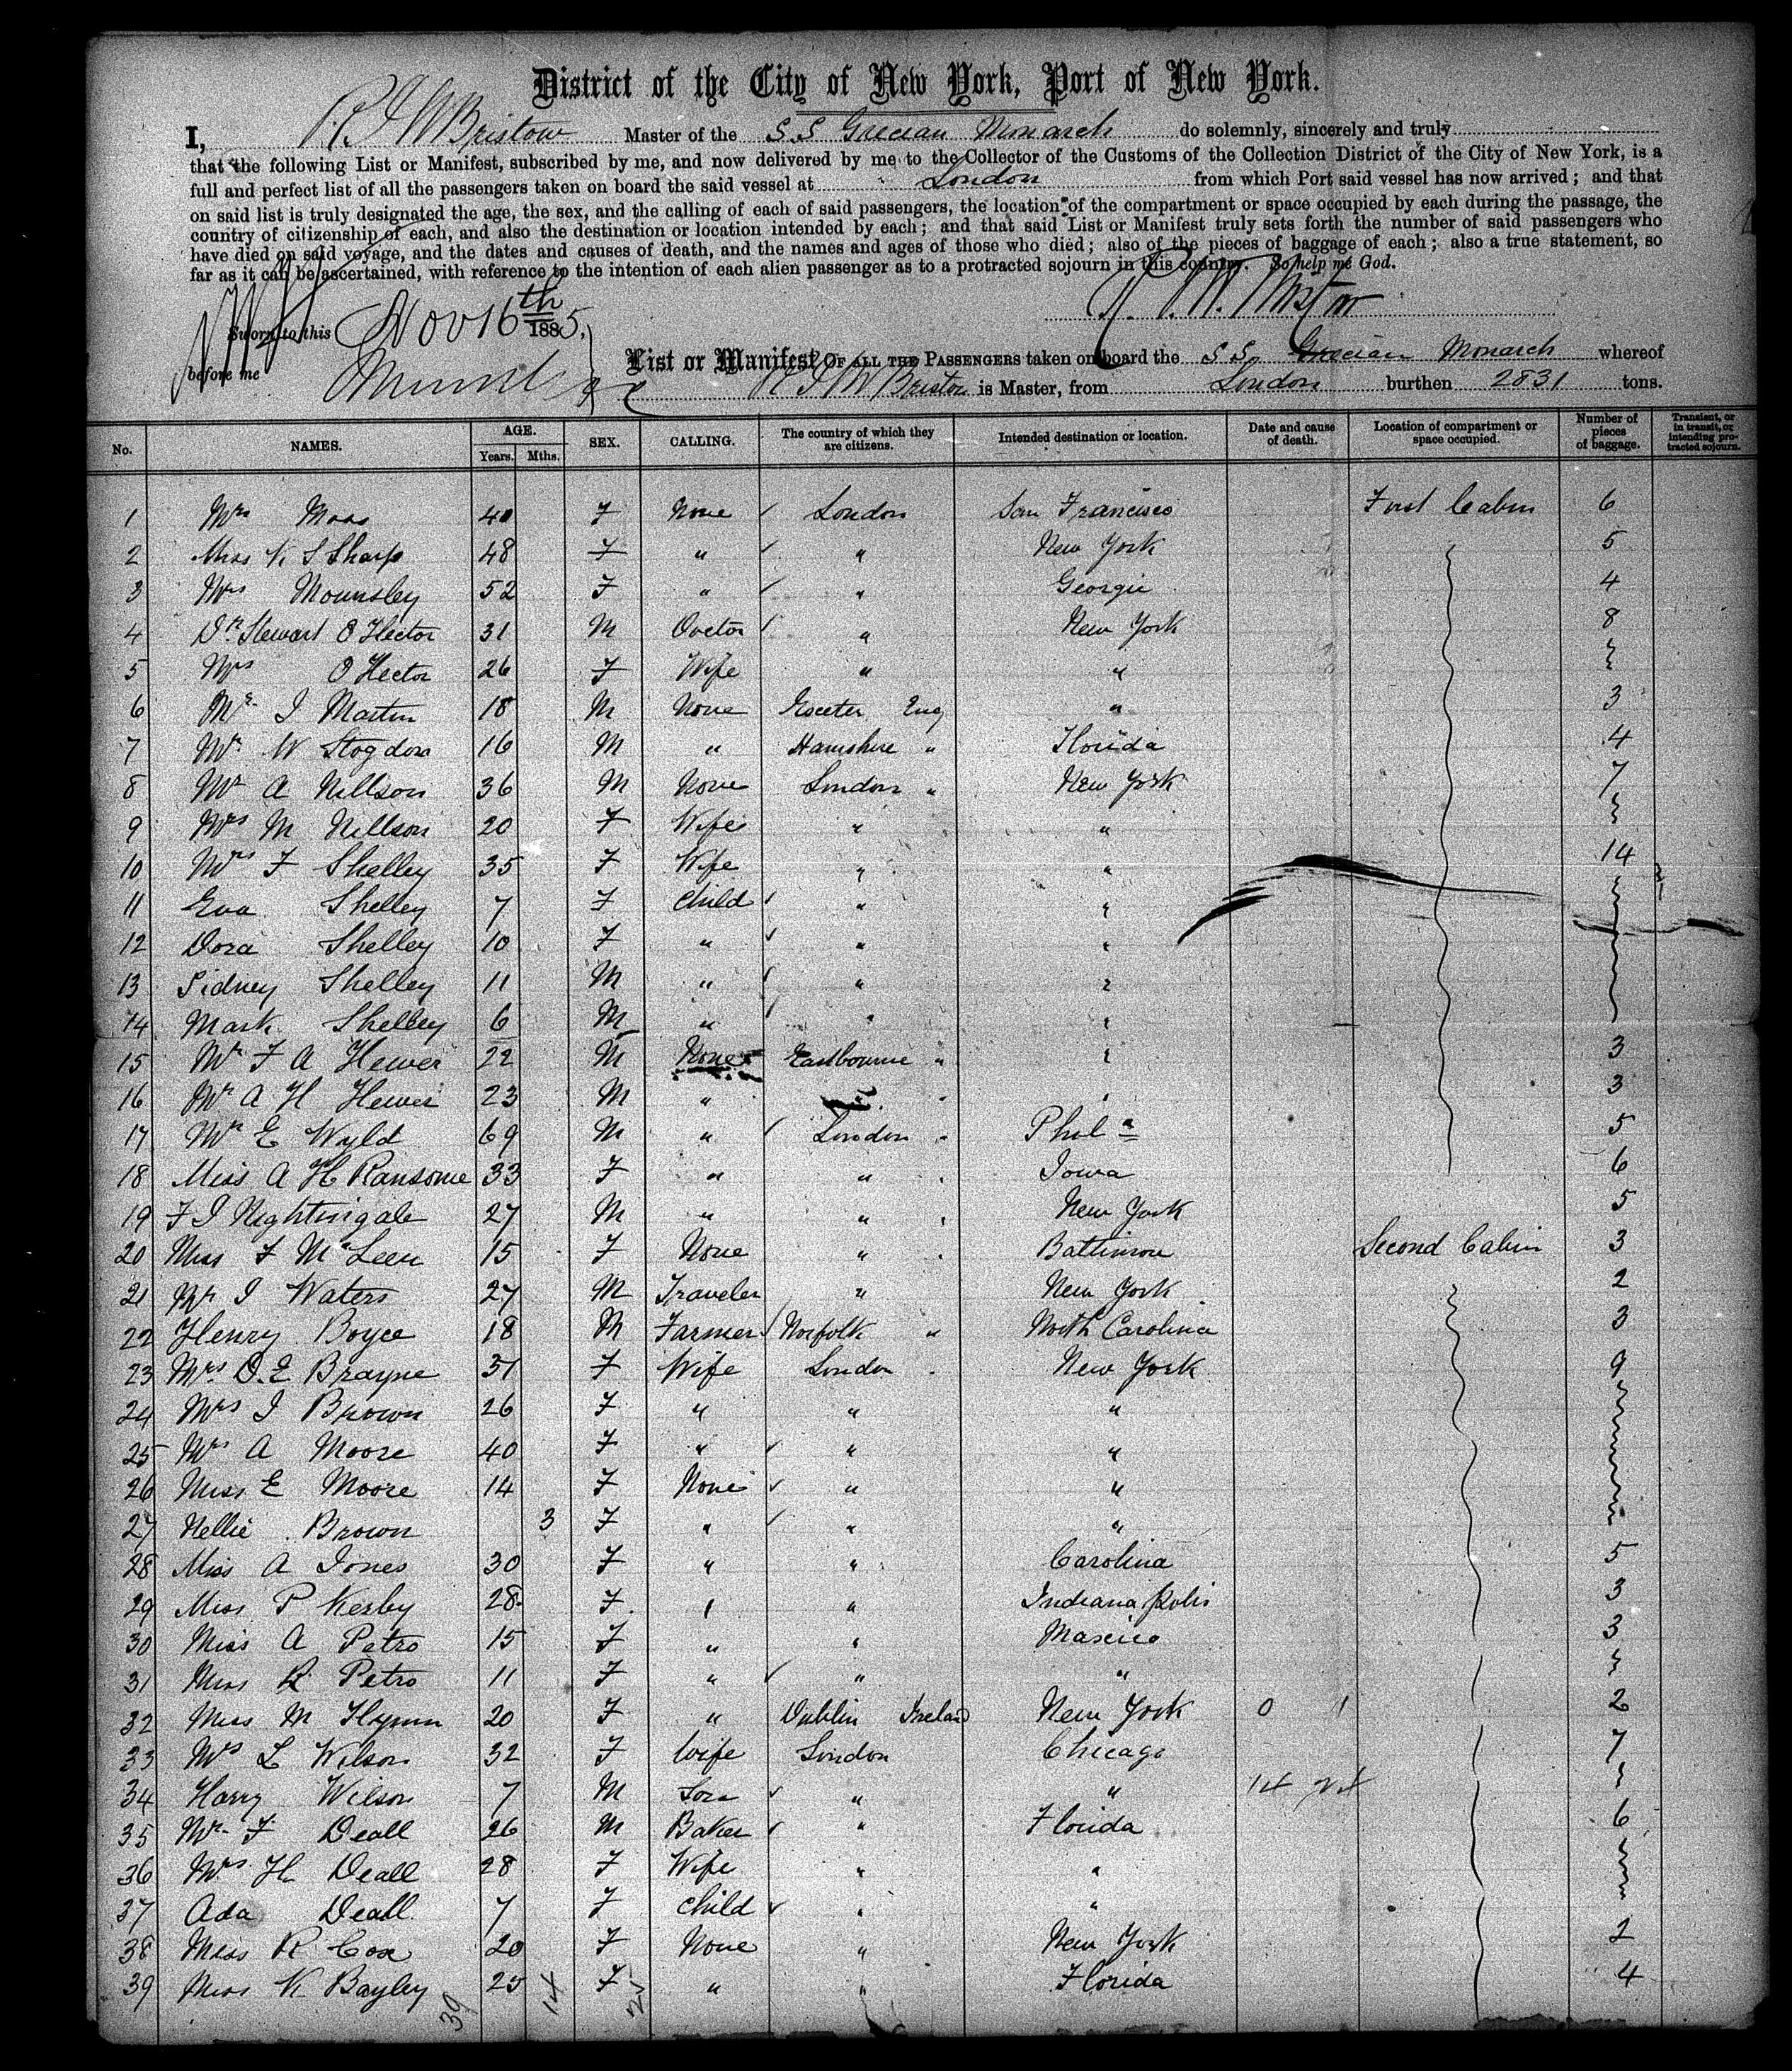 District of the City of New York, Port of New York.
I, R J W Bristow Master of the S.S Grecian Monarch do solemnly, sincerely and truly
that the following List or Manifest, subscribed by me, and now delivered by me to the Collector of the Customs of the Collection District of the City of New York, is a
full and perfect list of all the passengers taken on board the said vessel at London from which Port said vessel has now arrived; and that
on said list is truly designated the age, the sex, and the calling of each of said passengers, the location of the compartment or space occupied by each during the passage, the
country of citizenship of each, and also the destination or location intended by each; and that said List or Manifest truly sets forth the number of said passengers who
have died on said voyage, and the dates and causes of death, and the names and ages of those who died; also of the pieces of baggage of each; also a true statement, so
far as it can be ascertained, with reference to the intention of each alien passenger as to a protracted sojourn in this country. So help me God.
Sworn to this Nov 16th 1885,
before me
List or Manifest OF ALL THE PASSENGERS taken on board the S.S. Grecian Monarch whereof
R J W Bristow is Master, from London burthen 2831 tons.
No. NAMES. AGE. Years. Mths. SEX. CALLING. The country of which they are citizens. Intended destination or location. Date and cause of death. Location of compartment or space occupied. Number of pieces of baggage. Transient, or in transit, or intending protracted sojourn.
1 Mrs Moss 40 F None London San Francisco First Cabin 6
2 Miss K S Sharp 48 F " " New York 5
3 Mrs Mounsley 52 F " " Georgie 4
4 Dr Stewart O Hector 31 M Doctor " New York 8
5 Mrs O Hector 26 F Wife " "
6 Mr J Martin 18 M None Exeter Eng " 3
7 Mr W Stogdon 16 M " Hamshire " Florida 4
8 Mr A Nillson 36 M None London " New York 7
9 Mrs M Nillson 20 F Wife " "
10 Mrs F Shelley 35 F Wife " " 14
11 Eva Shelley 7 F Child " "
12 Dora Shelley 10 F " " "
13 Sidney Shelley 11 M " " "
14 Mark Shelley 6 M " " "
15 Mr F A Hewer 22 M None Eastbourne " " 3
16 Mr A H Hewer 23 M " " " " 3
17 Mr E Wyld 69 M " London " Phila 5
18 Miss A H Ransome 33 F " " " Iowa 6
19 F J Nightingale 27 M " " " New York 5
20 Miss F McLeen 15 F None " " Baltimore Second Cabin 3
21 Mr J Waters 27 M Traveler " New York 2
22 Henry Boyce 18 M Farmer Norfolk " North Carolina 3
23 Mrs O. E Brayne 31 F Wife London " New York 9
24 Mrs J Brown 26 F " " "
25 Mrs A Moore 40 F " " "
26 Miss E Moore 14 F None " "
27 Nellie Brown 3 F " " "
28 Miss A Jones 30 F " " Carolina 5
29 Miss P Kerby 28 F " " Indiana polis 3
30 Miss A Petro 15 F " " Maxico 3
31 Miss R Petro 11 F " " "
32 Miss M Flynn 20 F " Dublin Ireland New York 0 1 2
33 Mrs L Wilson 32 F Wife London Chicago 7
34 Harry Wilson 7 M Son " " 14 24
35 Mr F Deall 26 M Baker " Florida 6
36 Mrs H Deall 28 F Wife " "
37 Ada Deall 7 F Child " "
38 Miss R Cox 20 F None " New York 2
39 Miss K Bayley 25 F " " Florida 4
39 14 25